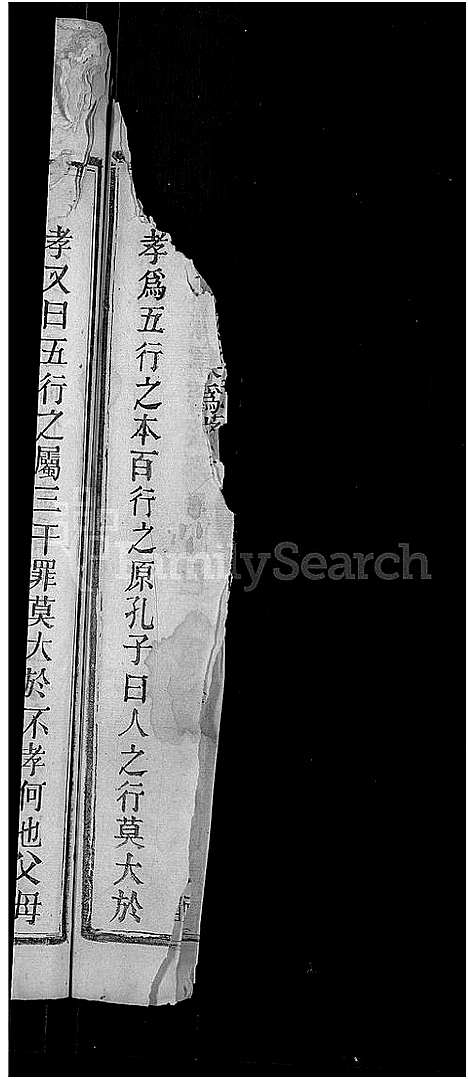 孝為五行之本百行之原孔子曰人之行莫大於
孝又曰五行之屬三千罪莫大於不孝何也父母
FamilySearch